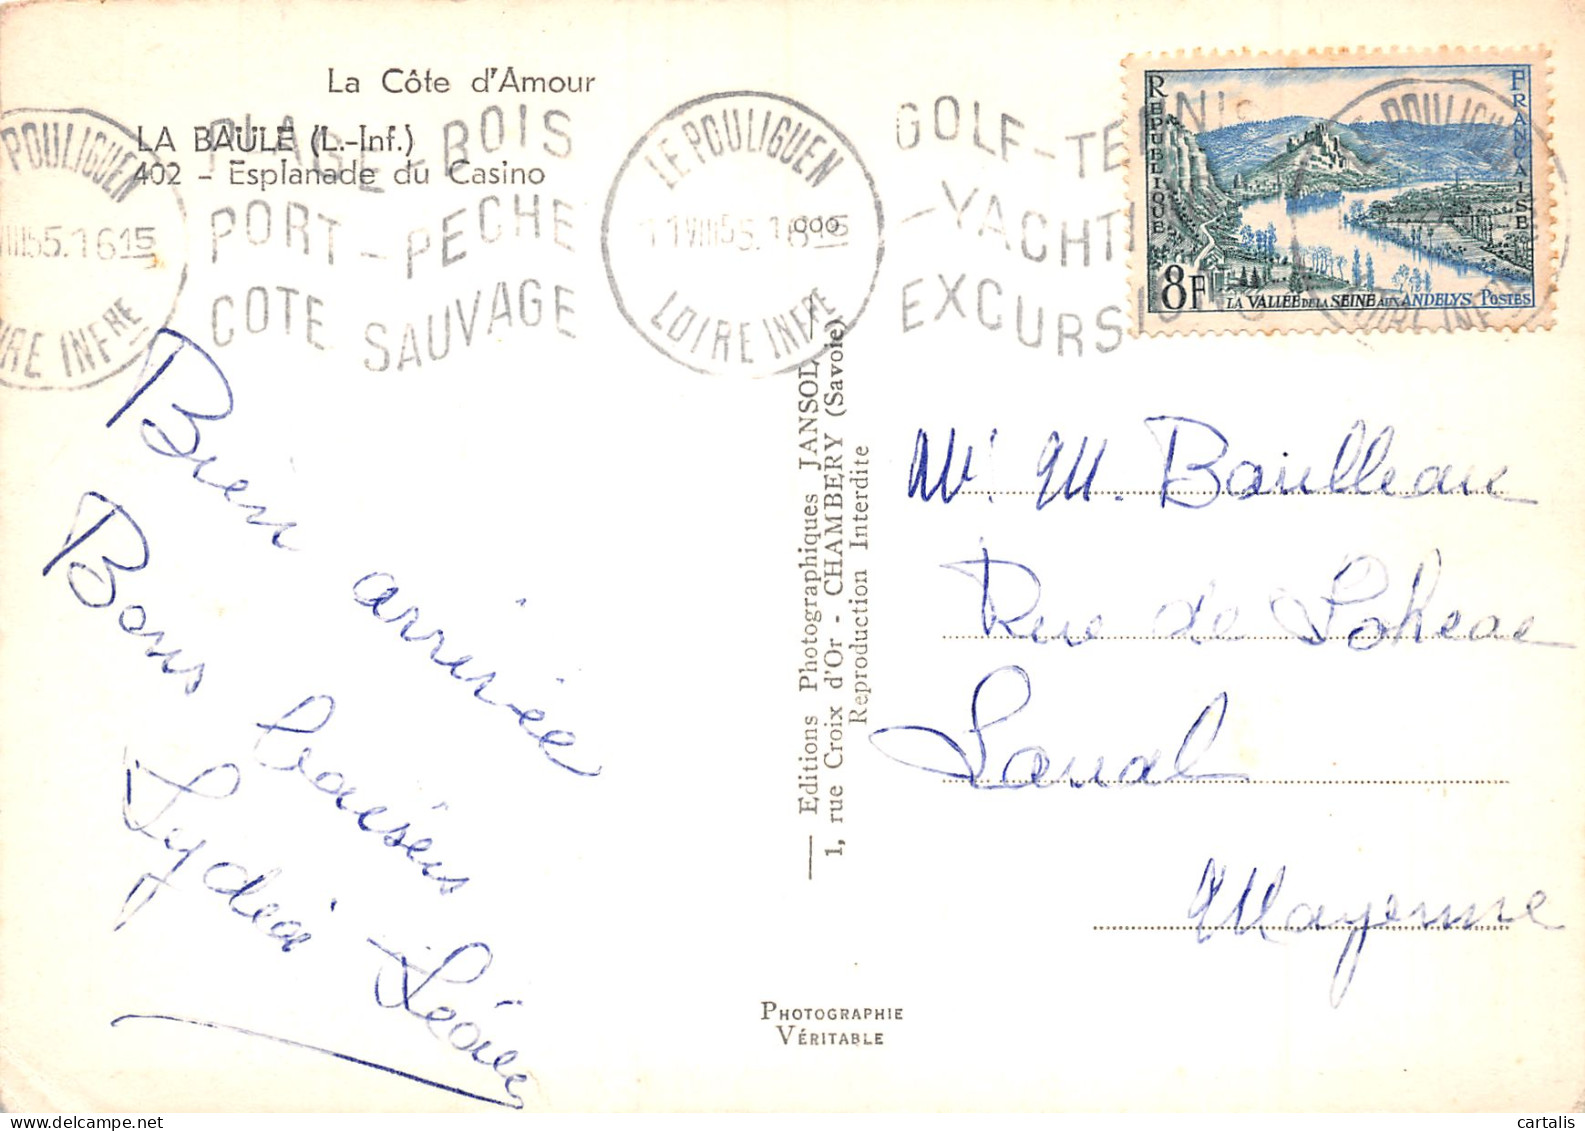 La Côte d'Amour
LA BAULE (L.-Inf.)
402 - Esplanade du Casino
POULIGUEN
VIII55.1615
LOIRE INFRE
PLAGE - BOIS
PORT - PECHE
COTE SAUVAGE
LE POULIGUEN
11VIII55.1615
LOIRE INFRE
GOLF-TENNIS
-YACHT
EXCURSIONS
REPUBLIQUE
FRANCAISE
8F
LA VALLÉE DE LA SEINE AUX ANDELYS POSTES
Bien arrivée
Bons baisers
Lydia
Editions Photographiques JANSOL
1, rue Croix d'Or - CHAMBERY (Savoie)
Reproduction Interdite
Mr. M. Bailleau
Rue de Loheac
Laval
Mayenne
PHOTOGRAPHIE
VÉRITABLE
cartalis